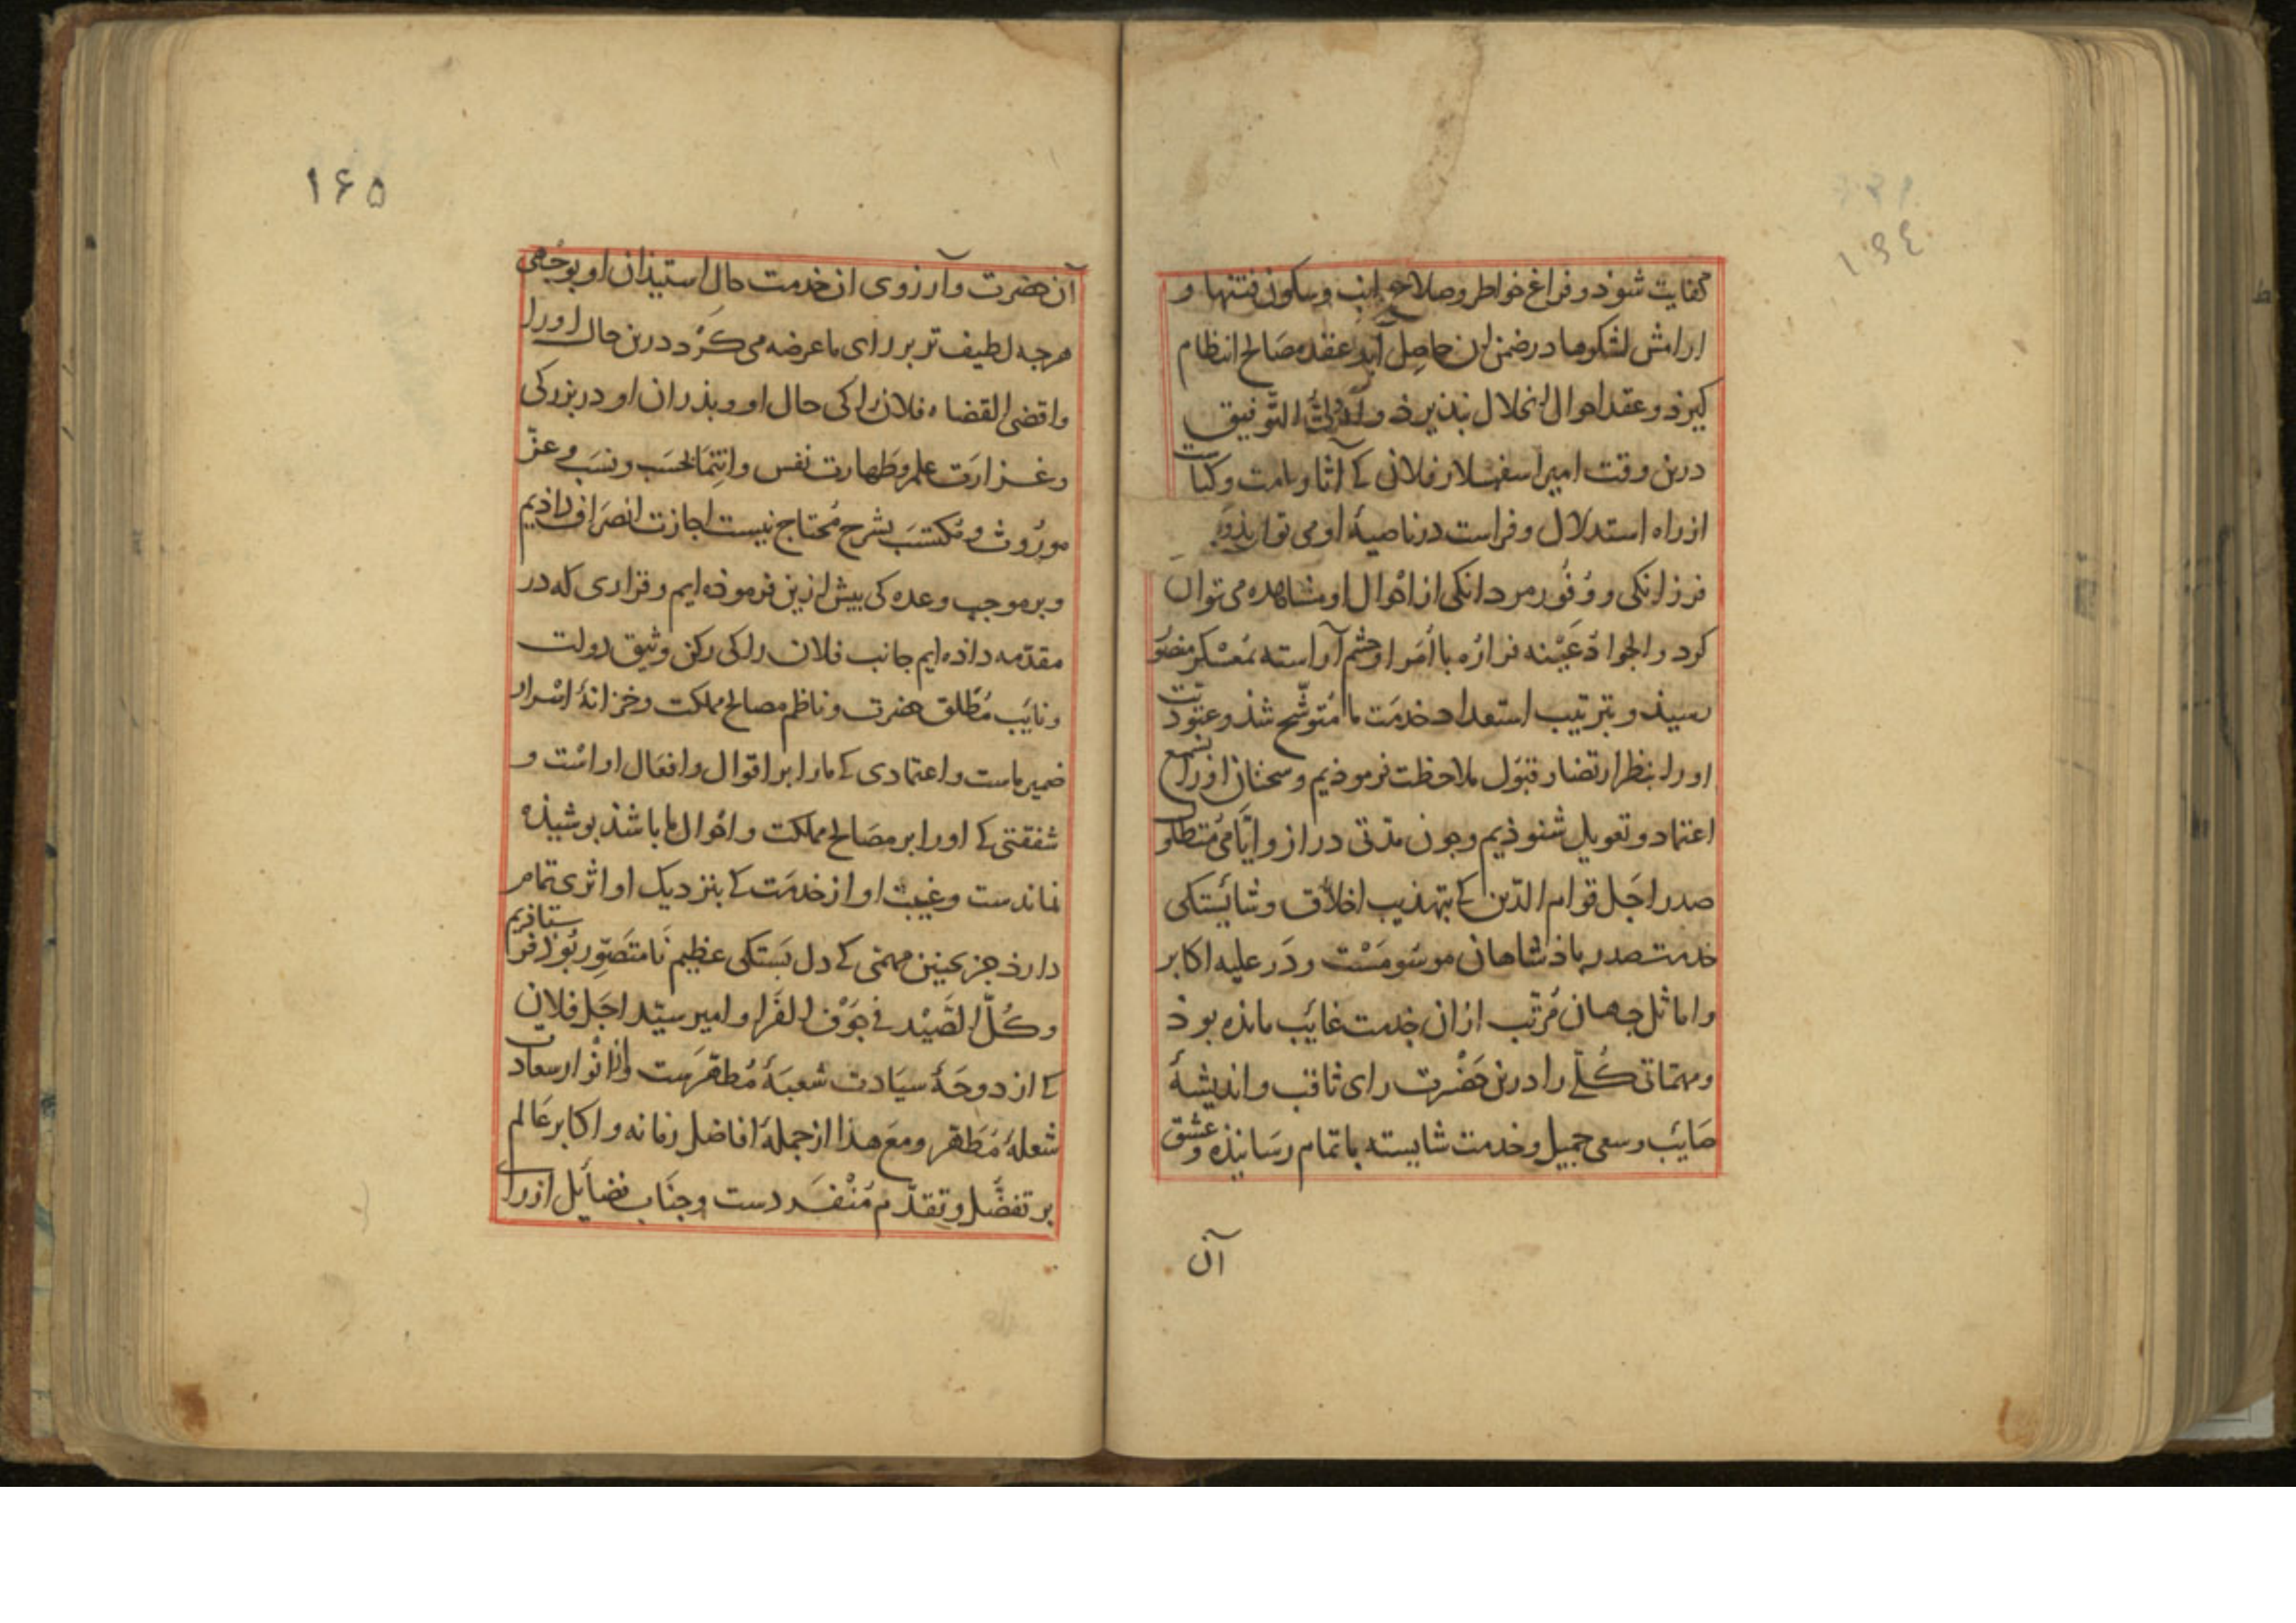 کفایت شوذ و فراغ خواطر و صلاح جوانب و سکون فتنها و
ارامش لشکرها در ضمن ان حاصل آید و عقد مصالح انتظام
کیرذ و عقد احوال انحلال بذیرذ و التوفیق
درین وقت امیر اسفهسلار فلانی کی آثار و کیاست
از راه استدلال و فراست در ناصیهٔ او می توان دید و
فرزانکی و وُفُور مردانکی از احوال او مشاهده می توان
کرد و الجوادُ عَیْنه فراره با اُمَرا و حشم آراسته بمُعَسْکر منصُور
رسیذ و بترتیب استعداد خدمت ما مُتوشّح شذ و عبودیت
او را بنظر ارتضا و قبول ملاحظت فرموذیم و سخنان او را بسمع
اعتماد و تعویل شنوذیم و جون مدّتی دراز و ایّامی مُتطاول
صدر اجَل قوام الدّین کی بتهذیب اخلاق و شایستکی
خدمت صدر باذشاهان موسُومَسْت و دَر علیه اکابر
و اماثل جهان مُرتّب از ان خدمت غایب مانده بوذ
و مهمّات کُلّی را درین حَضْرت رای ثاقب و اندیشهٔ
صایب و سعی جمیل و خدمت شایسته باتمام رسانیذه و عشق
آن
۱۶۵
آن حضرت و آرزوی ان خدمت حال استیذان او بوجهی
هرجه لطیف تر بر رای ما عرضه می کَرْد درین حال او را
و اقضی القضاه فلان را کی حال او و بذران او در بزرکی
و غزارت علم و طهارت نفس و انتما بحسَب و نسَب و عزّ
مورُوث و مُکتسَب بشرح مُحتاج نیست اجازت انصراف داذیم
و بر موجب وعده کی بیش ازین فرموذه ایم و قراری که در
مقدّمه داذه ایم جانب فلان را کی رکن وثیق دولت
و نایب مُطلق حضرت و ناظم مصالح مملکت و خزانهٔ اسْرار
ضمیر ماست و اعتمادی کی ما را بر اقوال و افعال او است و
شفقتی کی او را بر مصالح مملکت و احوال ما باشذ بوشیذه
نماندست و غیبت او از خدمت کی بنزدیک او اثری تمام
دارذ جز بجنین مهمّی کی دل بستکی عظیم نامتصوّر بُوذ فرستاذیم
و کُلّ الصَّیْد فی جَوْف الفَرا و امیر سیّد اجل فلان
کی از دوحهٔ سیادت شعبهٔ مُطهّرست و از انْوار سعادت
شعلهٔ مُطهّر و مع هذا از جملهٔ افاضل زمانه و اکابر عالم
بر تفضّل و تقدّم مُنْفَردست و جناب فضایل او را